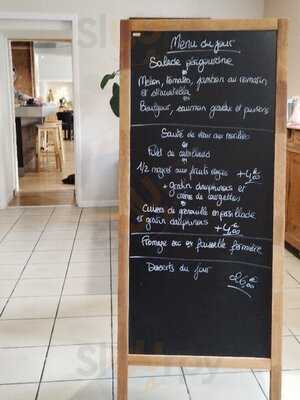 Menu du jour
Salade périgourdine
ou
Melon, tomates, jambon au romarin
et stracciatella
ou
saumon gravlax et
Sauté de veau aux morilles
ou
Filet de cabillaud
ou
1/2 magret aux fruits rouges +4,00
+ gratin dauphinois et
crème de courgettes
ou
Cuisses de grenouille en persillade
et gratin dauphinois
+4,00
Fromage sec ou faisselle fermière
Desserts du jour
26,00€